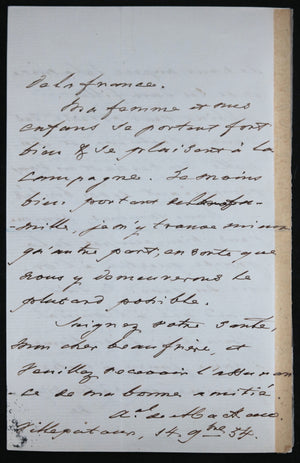 de la france.
Ma femme et mes
enfans se portent fort
bien & se plaisent à la
campagne. Le moins
bien portant de la fa-
-mille, je m'y trouve mieux
qu'autre part, en sorte que
nous y demeurerons le
plus tard possible.
Soignez votre santé,
mon cher beau frère, et
Veuillez recevoir l'assuran-
-ce de ma bonne amitié.
A.el de Mac
14 9bre 54.